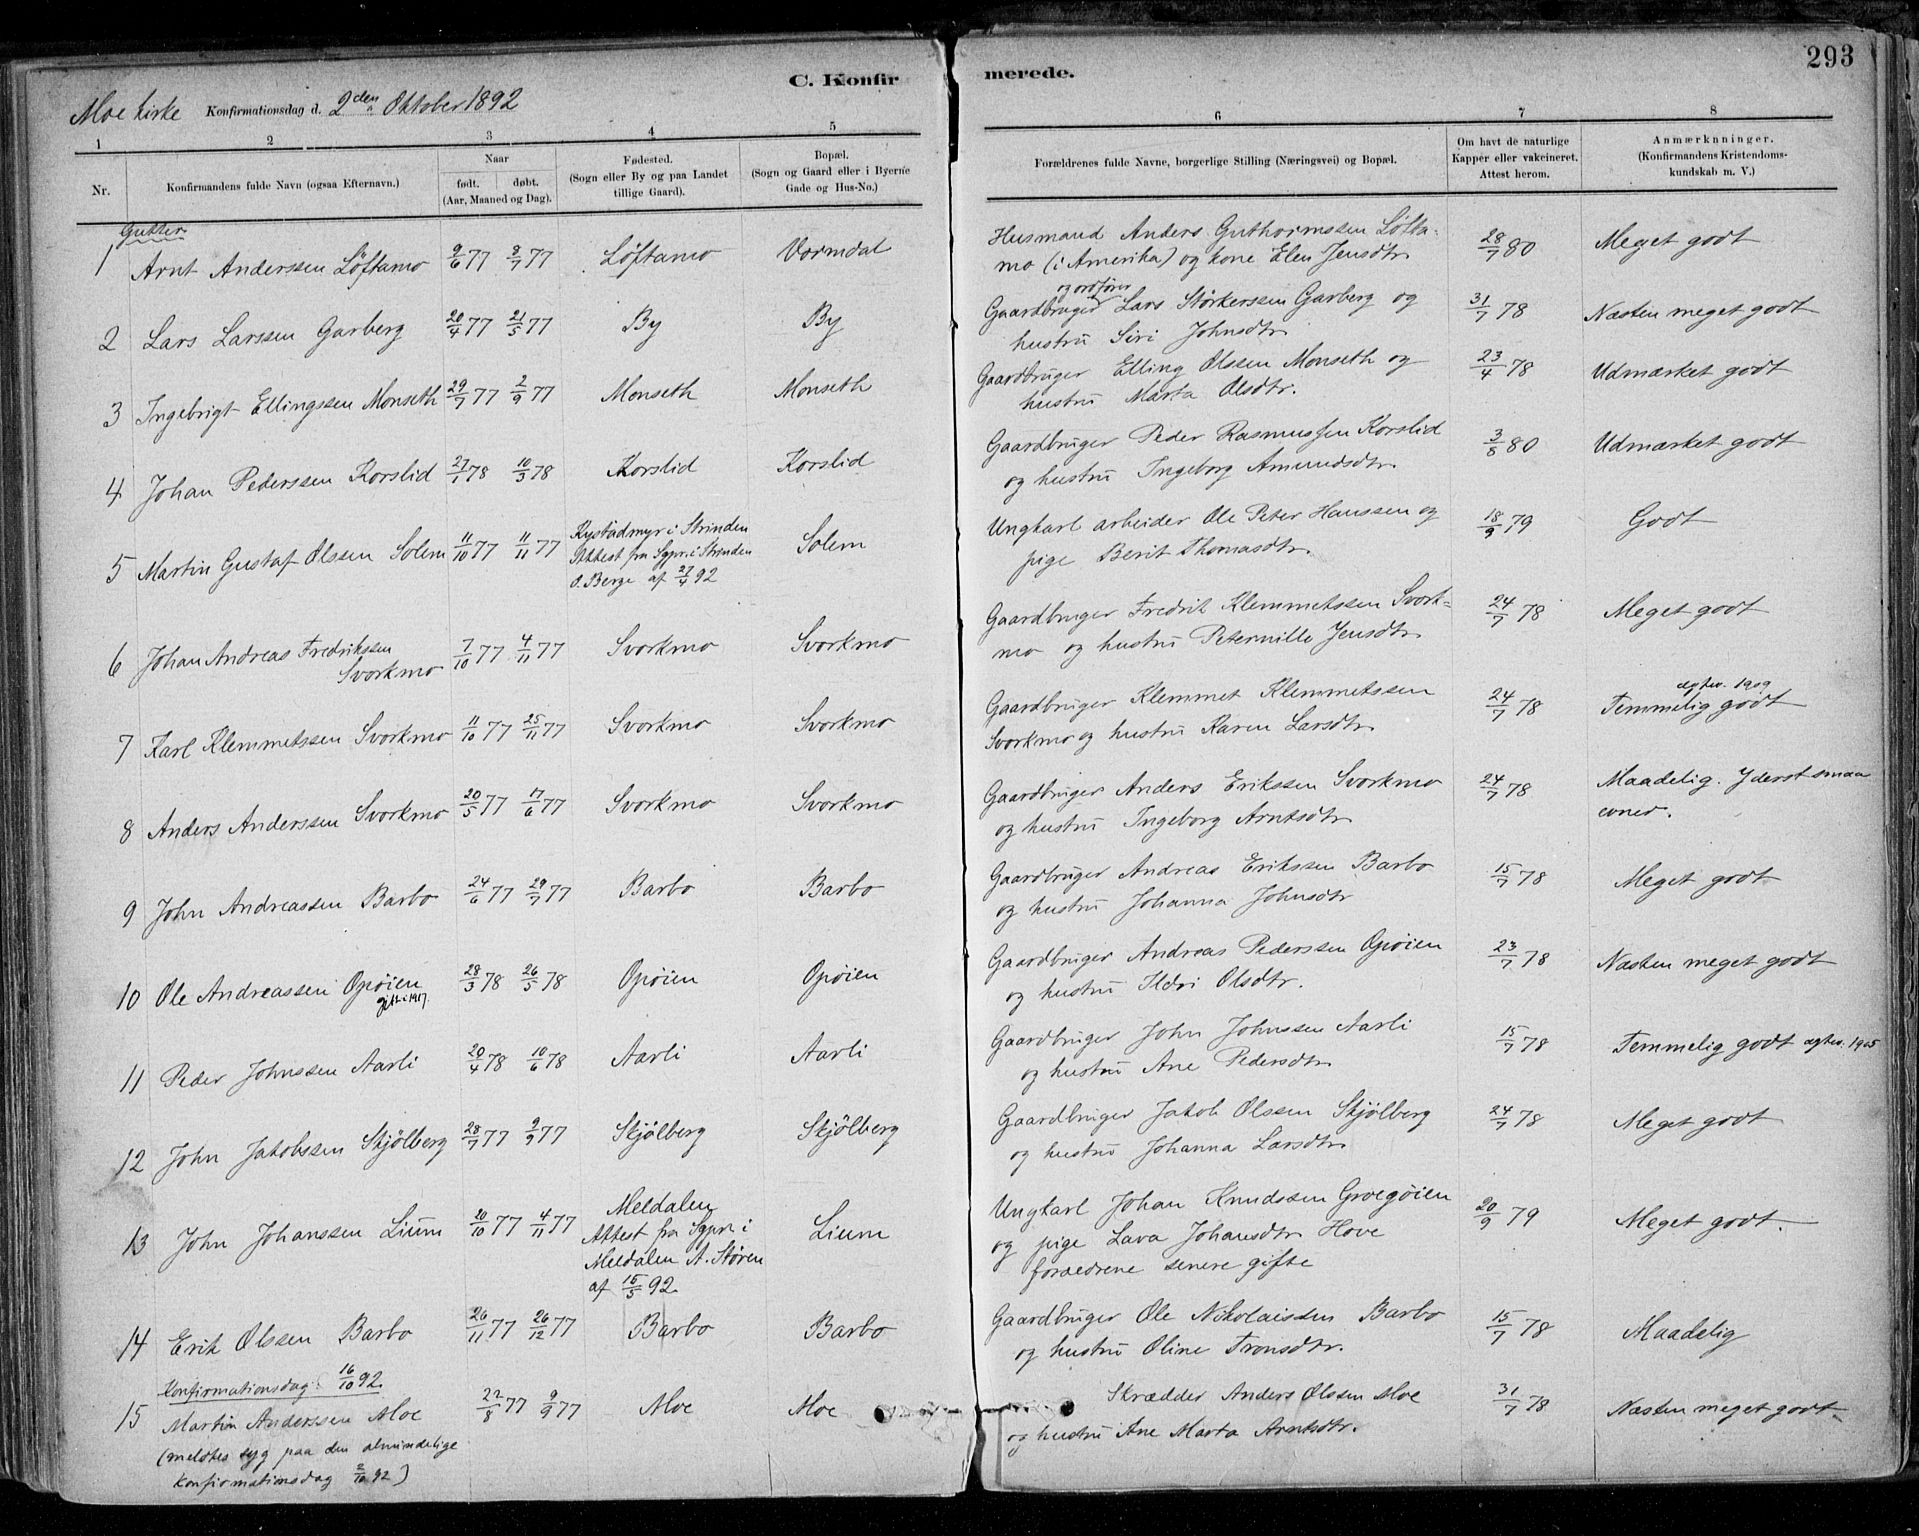 293
C. Konfirmerede.
Moe kirke Konfirmationsdag d. 2den Oktober 1892
1 2 3 4 5 6 7 8
Nr.
Konfirmandens fulde Navn (ogsaa Efternavn.)
Naar
født. døbt.
(Aar, Maaned og Dag).
Fødested.
(Sogn eller By og paa Landet
tillige Gaard).
Bopæl.
(Sogn og Gaard eller i Byerne
Gade og Hus-No.)
Forældrenes fulde Navne, borgerlige Stilling (Næringsvei) og Bopæl.
Om havt de naturlige
Kopper eller vakcineret.
Attest herom.
Anmærkninger.
(Konfirmandens Kristendoms-
kundskab m. V.)
Gutter
1 Arnt Anderssen Löftamo 9/6 77 8/7 77 Löftamo Vormdal
Husmand Anders Guthormssen Löfta-
mo (i Amerika) og kone Elen Jensdtr. 28/7 80 Meget godt
2 Lars Larssen Garberg 20/4 77 21/5 77 By By
og ordfører
Gaardbruger Lars Störkerssen Garberg og
hustru Siri Johnsdtr. 31/7 78 Næsten meget godt
3 Ingebrigt Ellingssen Monseth 29/7 77 2/9 77 Monseth Monseth
Gaardbruger Elling Olssen Monseth og
hustru Marta Olsdtr. 23/4 78 Udmærket godt
4 Johan Pederssen Korslid 27/1 78 10/3 78 Korslid Korslid
Gaardbruger Peder Rasmussen Korslid
og hustru Ingeborg Amundsdtr. 3/8 80 Udmærket godt
5 Martin Gustaf Olssen Solem 11/10 77 11/11 77 Kystadmyr i Strinden
Attest fra Sgpr. i Strinden
O. Berge af 27/4 92 Solem
Ungkarl arbeider Ole Peter Hanssen og
pige Berit Thomasdtr. 18/9 79 Godt
6 Johan Andreas Fredrikssen
Svorkmo 7/10 77 4/11 77 Svorkmo Svorkmo
Gaardbruger Fredrik Klemmetssen Svork-
mo og hustru Peternille Jensdtr. 24/7 78 Meget godt
7 Karl Klemmetssen Svorkmo 11/10 77 25/11 77 Svorkmo Svorkmo
Gaardbruger Klemmet Klemmetssen
Svorkmo og hustru Karen Larsdtr. 24/7 78 ægtev. 1909
Temmelig godt
8 Anders Anderssen Svorkmo 20/5 77 17/6 77 Svorkmo Svorkmo
Gaardbruger Anders Erikssen Svorkmo
og hustru Ingeborg Arntsdtr. 24/7 78 Maadelig. Yderst smaa
evner.
9 John Andreassen Barbo 24/6 77 29/7 77 Barbo Barbo
Gaardbruger Andreas Erikssen Barbo
og hustru Johanna Johnsdtr 15/7 78 Meget godt
10 Ole Andreassen Opöien
gift i 1917 28/3 78 26/5 78 Opöien Opöien
Gaardbruger Andreas Pederssen Opöien
og hustru Ildri Olsdtr. 23/7 78 Næsten meget godt
11 Peder Johnssen Aarli 20/4 78 10/6 78 Aarli Aarli
Gaardbruger John Johnssen Aarli
og hustru Ane Pedersdtr. 15/7 78 Temmelig godt ægtev. 1905
12 John Jakobssen Skjölberg 28/7 77 9/9 77 Skjölberg Skjölberg
Gaardbruger Jakob Olssen Skjölberg
og hustru Johanna Larsdtr. 24/7 78 Meget godt
13 John Johanssen Lium 20/10 77 4/11 77 Meldalen
Attest fra Sgpr. i
Meldalen A. Stören
af 15/5 92. Lium
Ungkarl Johan Knudssen Groegöien
og pige Lava Johansdtr. Hove
forældrene senere gifte 20/9 79 Meget godt.
14 Erik Olssen Barbo 26/11 77 26/12 77 Barbo Barbo
Gaardbruger Ole Nikolaissen Barbo
og hustru Oline Tronsdtr. 15/7 78 Maadelig
Konfirmationsdag 16/10 92.
15 Martin Anderssen Moe 22/8 77 9/9 77 Moe Moe
(meldtes syg paa den almindelige
Konfirmationsdag 2/10 92)
Skrædder Anders Olssen Moe
og hustru Ane Marta Arntsdtr. 31/7 78 Næsten meget godt